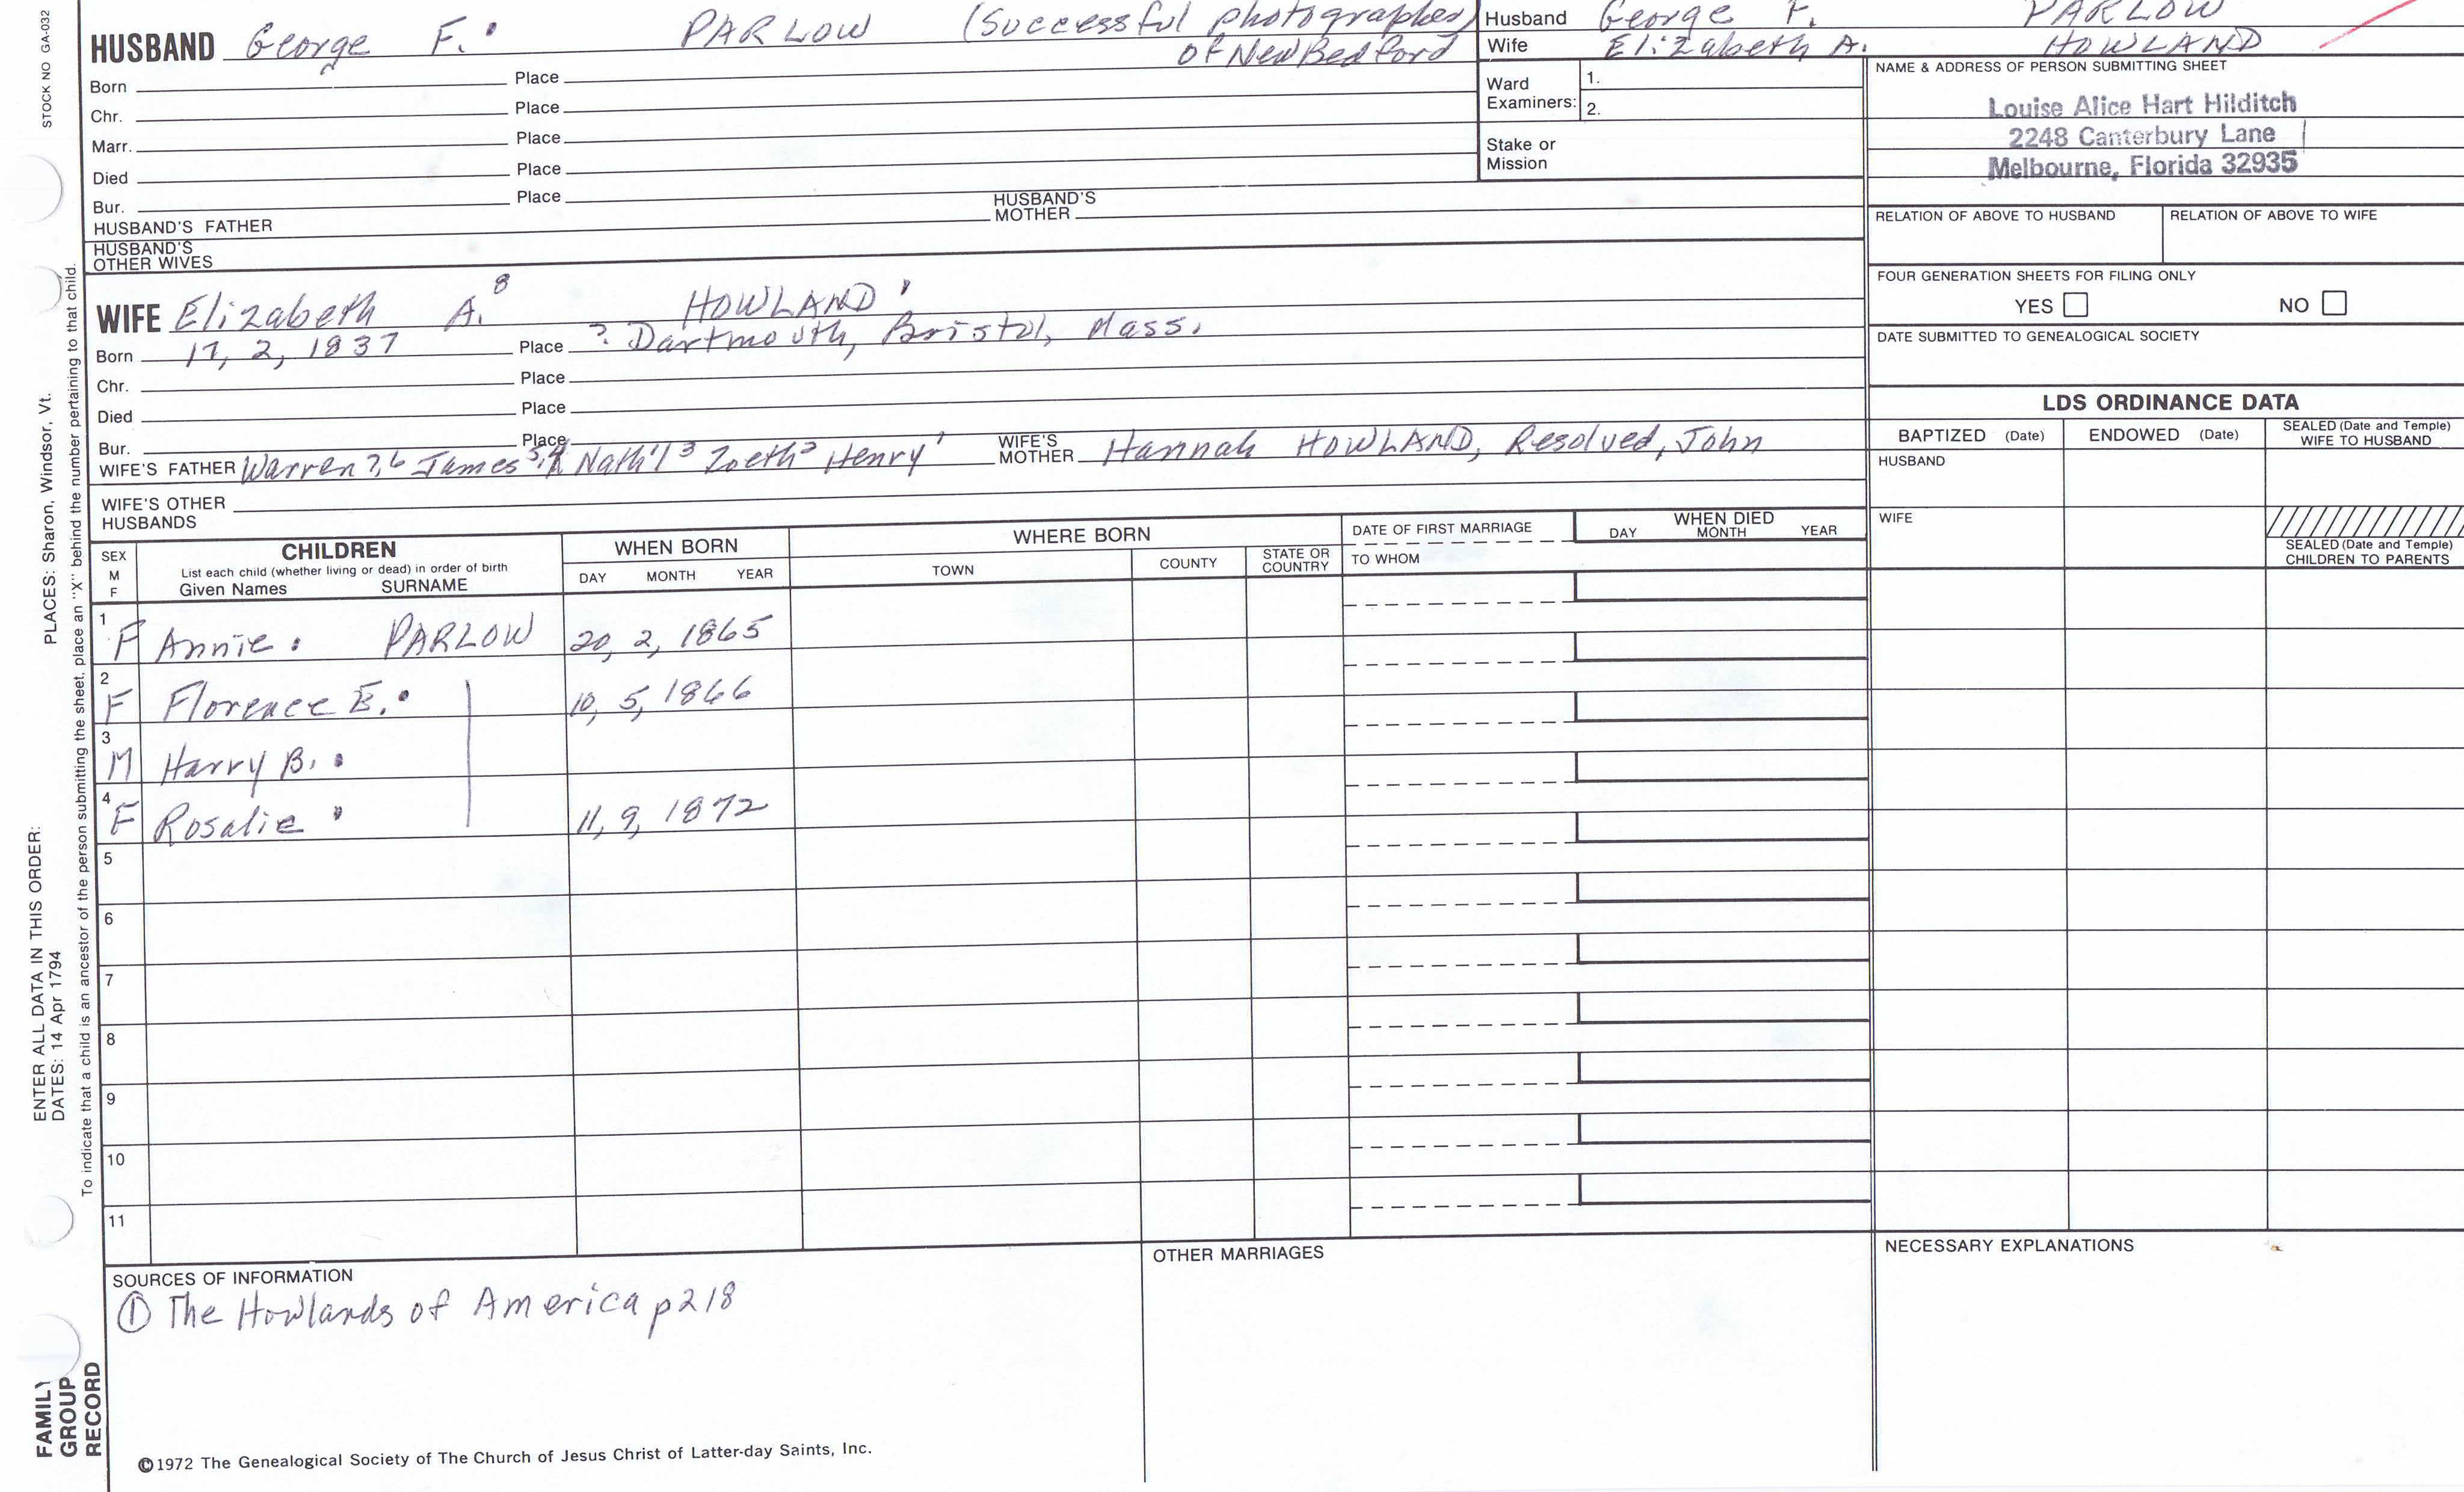 STOCK NO GA-032
PLACES: Sharon, Windsor, Vt.
ENTER ALL DATA IN THIS ORDER:
DATES: 14 Apr 1794
To indicate that a child is an ancestor of the person submitting the sheet, place an "X" behind the number pertaining to that child.
FAMILY GROUP RECORD
HUSBAND George F. PARLOW (Successful photographer
of New Bedford
Born Place
Chr. Place
Marr. Place
Died Place
Bur. Place
HUSBAND'S FATHER HUSBAND'S MOTHER
HUSBAND'S OTHER WIVES
WIFE Elizabeth A. 8 HOWLAND
Born 17, 2, 1837 Place ? Dartmouth, Bristol, Mass.
Chr. Place
Died Place
Bur. Place
WIFE'S FATHER Warren 7,6 James Nath'l 3 Zoeth 2 Henry 1 WIFE'S MOTHER Hannah HOWLAND, Resolved, John
WIFE'S OTHER HUSBANDS
Husband George F. PARLOW
Wife Elizabeth A. HOWLAND
Ward Examiners: 1.
2.
Stake or Mission
NAME & ADDRESS OF PERSON SUBMITTING SHEET
Louise Alice Hart Hilditch
2248 Canterbury Lane
Melbourne, Florida 32935
RELATION OF ABOVE TO HUSBAND RELATION OF ABOVE TO WIFE
FOUR GENERATION SHEETS FOR FILING ONLY
YES NO
DATE SUBMITTED TO GENEALOGICAL SOCIETY
LDS ORDINANCE DATA
BAPTIZED (Date) ENDOWED (Date) SEALED (Date and Temple) WIFE TO HUSBAND
HUSBAND
WIFE
SEALED (Date and Temple) CHILDREN TO PARENTS
SEX M F
CHILDREN
List each child (whether living or dead) in order of birth
Given Names SURNAME
WHEN BORN
DAY MONTH YEAR
WHERE BORN
TOWN COUNTY STATE OR COUNTRY
DATE OF FIRST MARRIAGE
TO WHOM
WHEN DIED
DAY MONTH YEAR
1 F Annie PARLOW 20, 2, 1865
2 F Florence E. 10, 5, 1866
3 M Harry B.
4 F Rosalie 11, 9, 1872
5
6
7
8
9
10
11
SOURCES OF INFORMATION
① The Howlands of America p218
OTHER MARRIAGES
NECESSARY EXPLANATIONS
©1972 The Genealogical Society of The Church of Jesus Christ of Latter-day Saints, Inc.